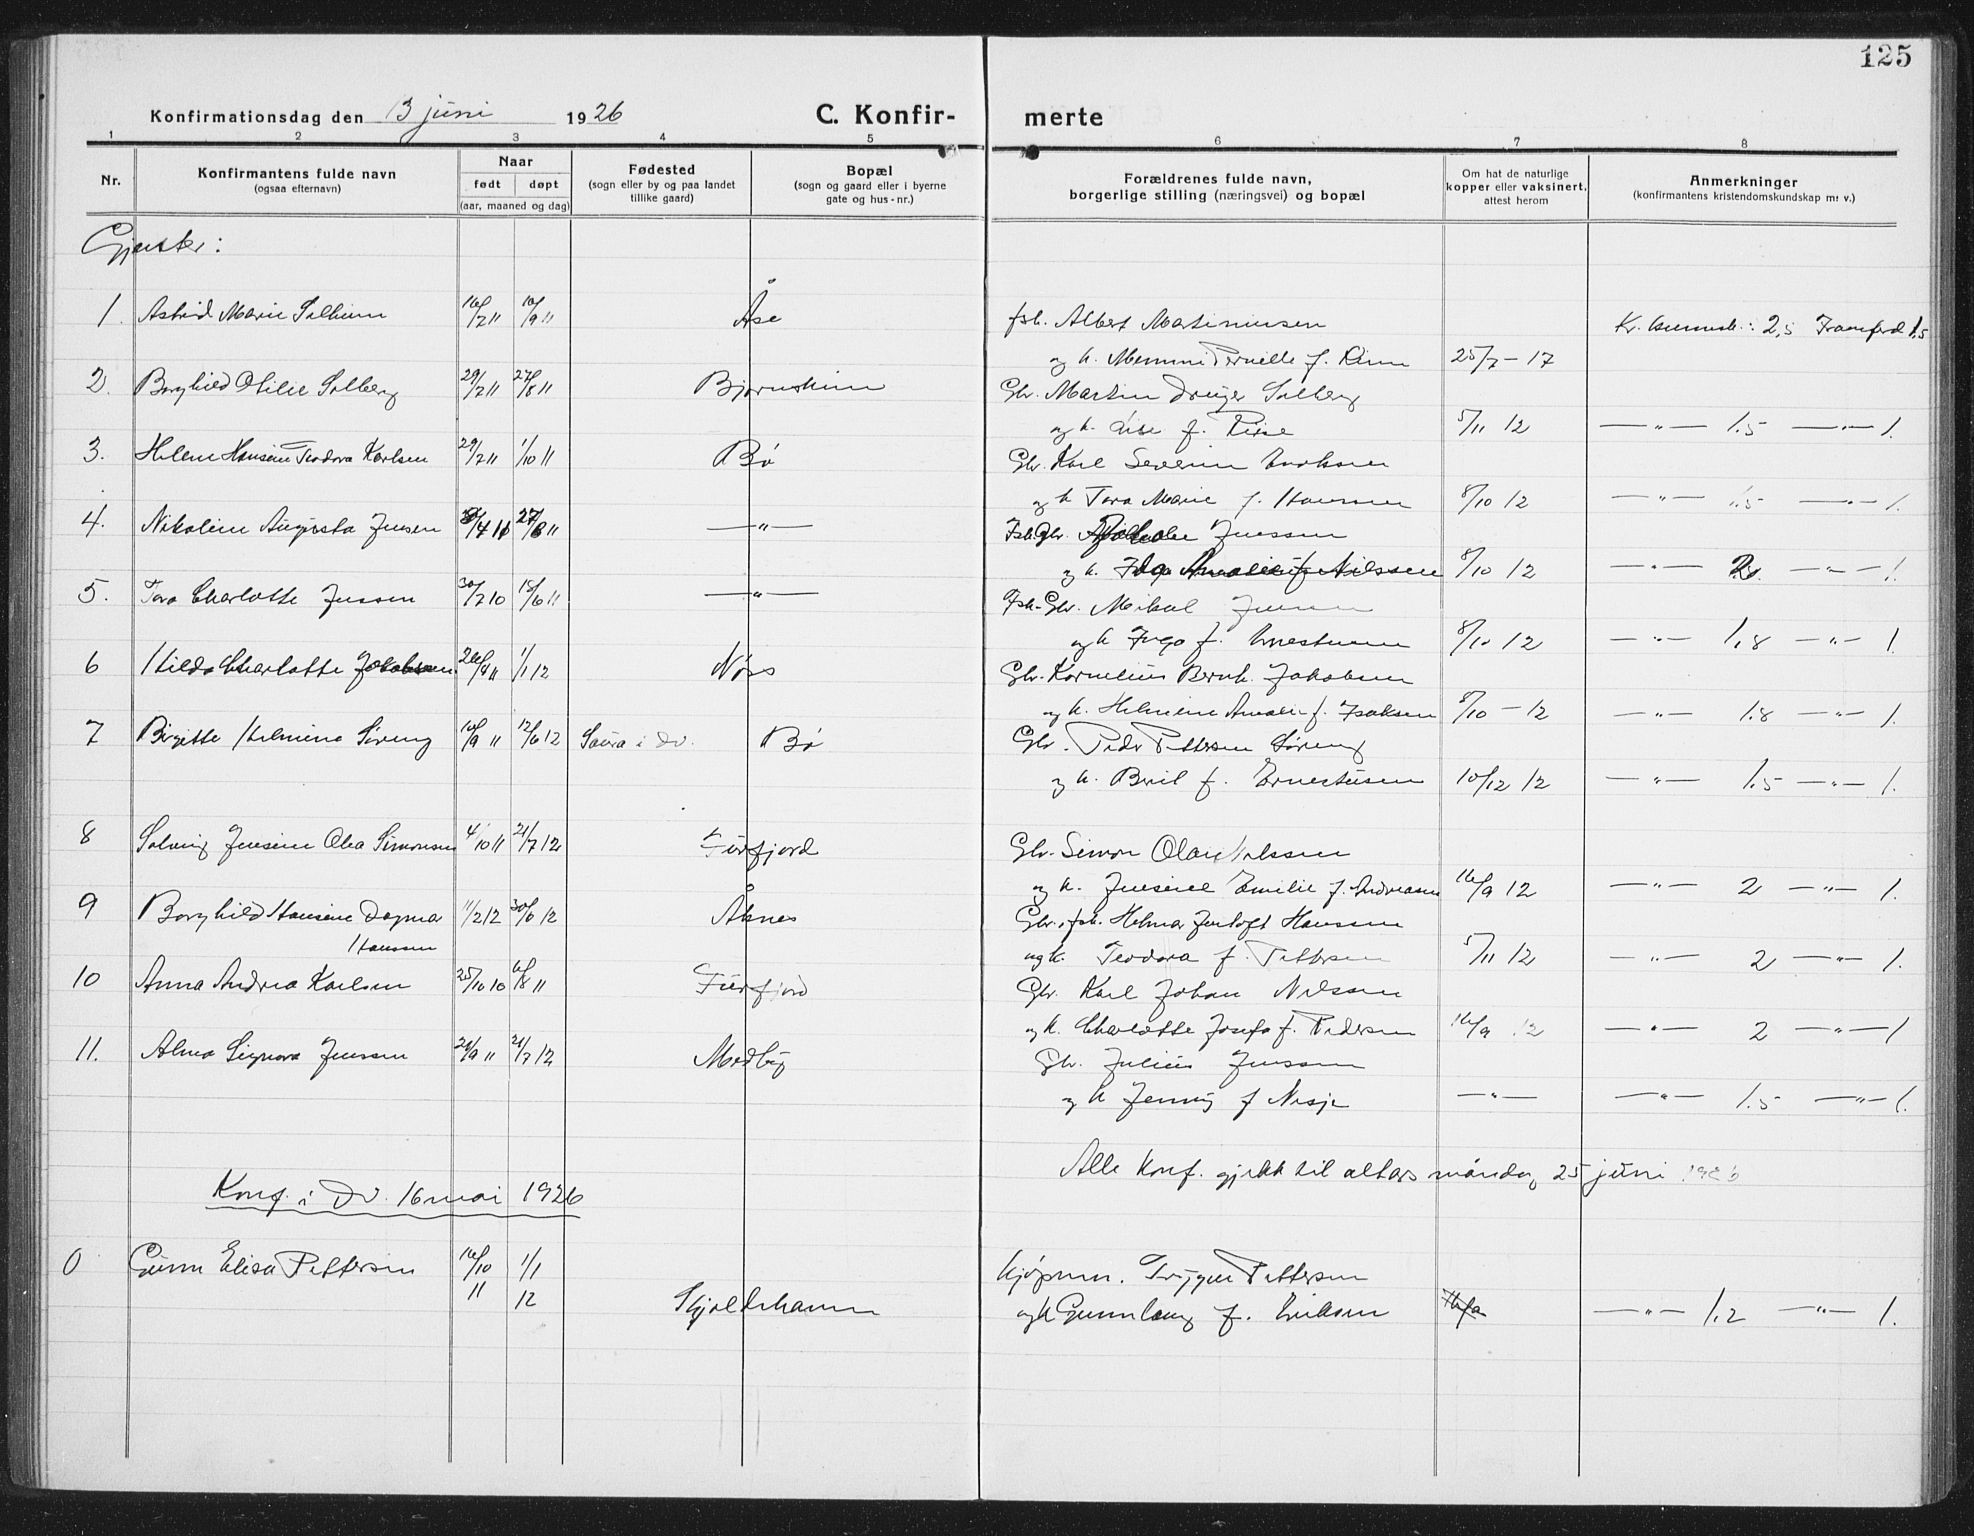 125
Konfirmationsdag den 13 juni 1926 C. Konfirmerte
1 2 3 4 5 6 7 8
Nr.
Konfirmantens fulde navn
(ogsaa efternavn)
Naar
født døpt
(aar, maaned og dag)
Fødested
(sogn eller by og paa landet
tillike gaard)
Bopæl
(sogn og gaard eller i byerne
gate og hus-nr.)
Forældrenes fulde navn,
borgerlige stilling (næringsvei) og bopæl
Om hat de naturlige
kopper eller vaksinert,
attest herom
Anmerkninger
(konfirmantens kristendomskundskap m. v.)
Gjenter:
1. Astrid Marie Solheim 16/7 11 10/9 11 Åse fsk. Albert Martinussen Kr. kunnsk.: 2,5 Framferd 1,5
og h. Pernille f. 25/7 - 17
2. Borghild Otilie Solberg 29/7 11 27/8 11 Bjørnskinn Gbr. Martin Solberg
og h. f. 5/11 12 —"— 1.5 —"— 1.
3. Helene Hansine Teodora Karlsen 29/7 11 1/10 11 Bø Gbr. Karl Severin
og h Tora Marie f. Hanssen 8/10 12 —"— 1.5 —"— 1.
4. Nikoline Augusta Jensen 27/8 11 —"— Fsk. Gbr. Jenssen
og h. f. Nilssen 8/10 12 —"— 2. —"— 1.
5. Tora Charlotte Jenssen 30/7 10 18/6 11 —"— Fsk. Gbr. Mikal Jensen
og h Inga f. Ernestussen 8/10 12 —"— 1.8 —"— 1.
6 Hilda Charlotte Jakobsen 26/9 11 1/1 12 Nøss Gbr. Kornelius Bernh. Jakobsen
og h. Helmine Amalie f. Isaksen 8/10 - 12 —"— 1.8 —"— 1.
7 Birgitte Helmine Søreng 16/9 11 12/6 12 Saura i Dv. Bø Gbr. Peder Pettersen Søreng
og h. Beril f. Ernestusen 10/12 12 —"— 1.5 —"— 1.
8 Solveig Jensine Olea Simonsen 4/10 11 21/7 12 Fiirfjord Gbr. Simon Olai Nilssen
og h. Jensine Emilie f. Andreasen 16/9 12 —"— 2 —"— 1.
9 Borghild Hansine Dagmar 11/2 12 30/6 12 Åknes Gbr. fsk. Helmar Jentoft Hanssen
Hanssen
og h. Teodora f. Pettersen 5/11 12 —"— 2 —"— 1.
10 Anna Andrea Karlsen 25/10 10 6/8 11 Fiirfjord Gbr. Karl Johan Nilssen
og h. Charlotte Josefa f. Pedersen 16/9 12 —"— 2 —"— 1
11. Alma Signora Jenssen 21/7 12 Medby Gbr. Julius Jenssen
og h Jenny f Nesje —"— —"— 1.5 —"— 1.
Alle Konf. gjekk til alters måndag 25 juni 1926
Konf. i Dv. 16 mai 1926
0 Gunn Elisa Pettersen 16/10 11 1/1 12 Skjoldehamn Kjøpmn. Trygve Pettersen
og h Gunnlaug f. Eriksen —"— 1.2 —"— 1.